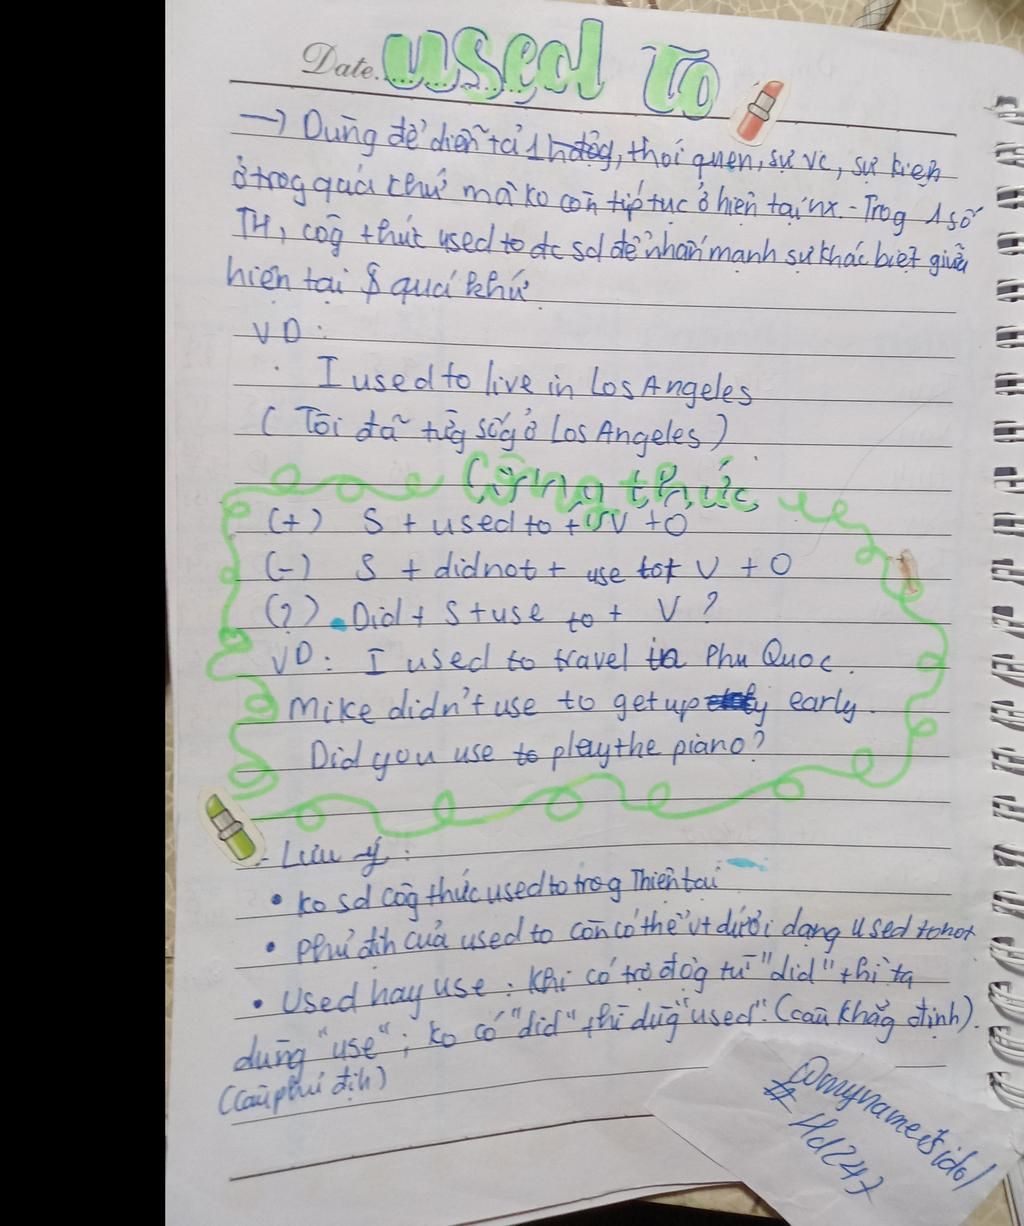 Date. used To
→ Dùng để diễn tả 1 hđộg, thói quen, sự vc, sự kiện
ở trog quá khứ mà ko còn tiếp tục ở hiện tại nx. - Trog 1 số
TH, côg thức used to đc sd để nhấn mạnh sự khác biệt giữa
hiện tại & quá khứ.
VD:
I used to live in Los Angeles
( Tôi đã từg sốg ở Los Angeles )
Công thức
(+) S + used to + V + O
(-) S + did not + use to + V + O
(?) Did + S + use to + V ?
VD: I used to travel in Phu Quoc.
Mike didn't use to get up early.
Did you use to play the piano?
- Lưu ý :
• ko sd côg thức used to trog Thiện tại
• Phủ địh của used to còn có thể vt dưới dạng used to not
• Used hay use : Khi có trợ độg từ "did" thì ta
dùng "use" ; ko có "did" thì dùg "used". (câu khẳg định).
(câu phủ địh)
@mynameisidol
# Hd247